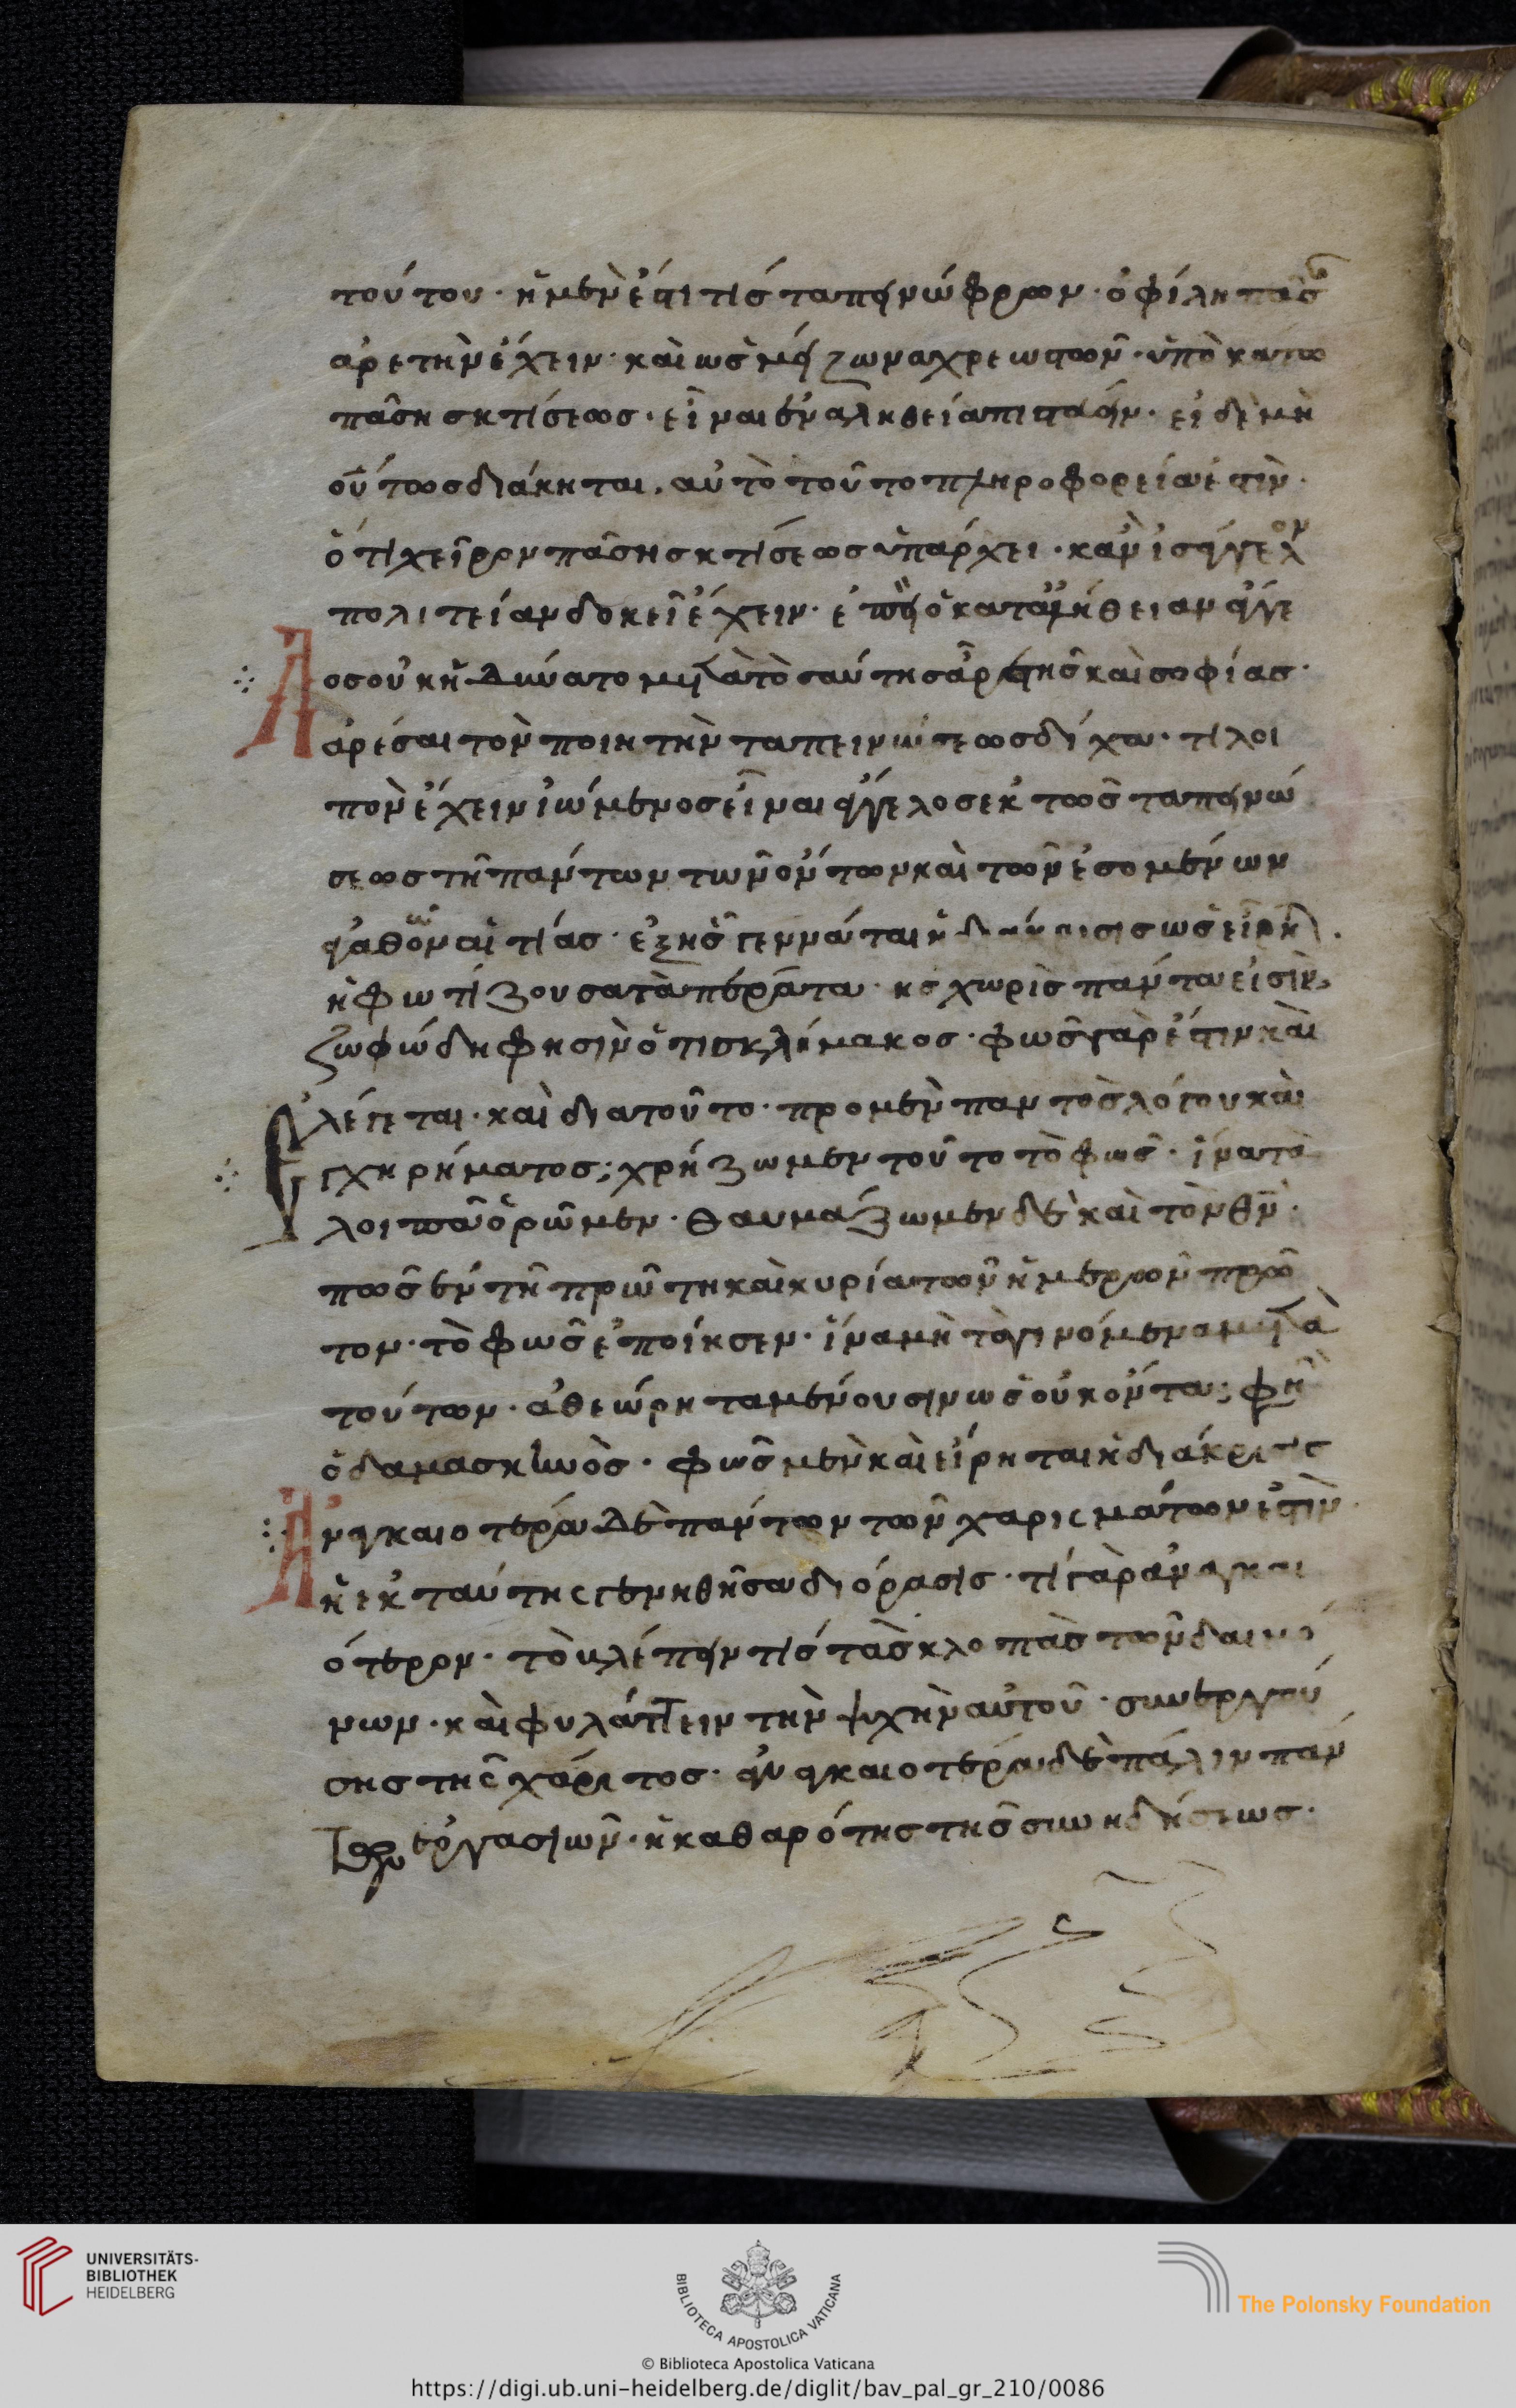 τούτου · ἢ μὲν ἐστί τίς ταπεινώφρων · ὀφίλη πᾶσ
ἀρετὴν ἔχειν · καὶ ὡς μείζων ἀχρεωστῶν · ὑπὸ κατω
πᾶσησ κτίσεως · εἶναι ἐν ἀληθεία πιστεύειν · εἰ δὲ μὴ
οὕτως διάκηται, αὐτὸ τοῦτο πληροφορεία ἐστὶν ·
ὅτι χεῖρον πᾶσησ κτίσεως ὑπάρχει · κἀν ἰσάγγελον
πολιτείαν δοκεῖ ἔχειν · ὁ κατα ἀλήθειαν ἄγγε
λοσ οὐκ ἠδύνατο μετὰ τοσαύτησ ἀρετῆσ καὶ σοφίασ ·
ἀρέσαι τὸν ποιητὴν ταπεινώσεωσ δίχα · τί λοι
πὸν ἔχειν ὁ οἰώμενοσ εἶναι ἄγγελοσ ἐκτὸς ταπεινώ
σεωσ τῆ πάντων τῶν ὄντων καὶ τῶν ἐσομένων
ἀγαθῶν αἰτίασ · ἐξ ἧσ γεννάται ἡ διάκρισισ ὡσ εἴρη
ἡ φωτίζουσα τὰ πέρατα · ἧσ χωρὶσ πάντα εἰσὶν
ζωφώδη φησὶν ὁ τισ κλίμακοσ · φῶσ γὰρ ἐστιν καὶ
λέγεται · καὶ διατοῦτο · προμὲν παντὸσ λόγου καὶ
ἐγχηρήματοσ; χρήζωμεν τοῦτο τὸ φῶσ · ἵνα τὰ
λοιπὰ ὁρῶμεν · θαυμάζωμεν δὲ καὶ τὸν θν ·
πῶσ ἐν τῆ πρώτη καὶ κυρία τῶν ἡμερῶν πρῶ
τον · τὸ φῶσ ἐποίησεν · ἵνα μὴ τὰ γινόμενα μετὰ
τούτων · ἀθεώρητα μένουσιν ὡσ οὐκ ὄντα; φη
ὁ δαμασκινὸσ · φῶσ μὲν καὶ εἴρηται ἡ διάκρισισ
ἀναγκαιοτέρα δὲ πάντων τῶν χαρισμάτων ἐστὶν ·
ἡ ἐκ ταύτης γενηθῆσα διόρασισ · τί γὰρ ἀναγκαι
ότερον · τὸ βλέπειν τίσ τὰσ κλοπὰσ τῶν δαιμό
νων · καὶ φυλάττειν τὴν ψυχὴν αὐτοῦ · συνεργού
σησ τῆς χάριτοσ · ἀναγκαιοτέρα δὲ πάλιν πάν
των ἐργασιῶν · ἡ καθαρότησ τῆσ συνηδήσεωσ ·
UNIVERSITÄTS-
BIBLIOTHEK
HEIDELBERG
BIBLIOTECA APOSTOLICA VATICANA
The Polonsky Foundation
© Biblioteca Apostolica Vaticana
https://digi.ub.uni-heidelberg.de/diglit/bav_pal_gr_210/0086